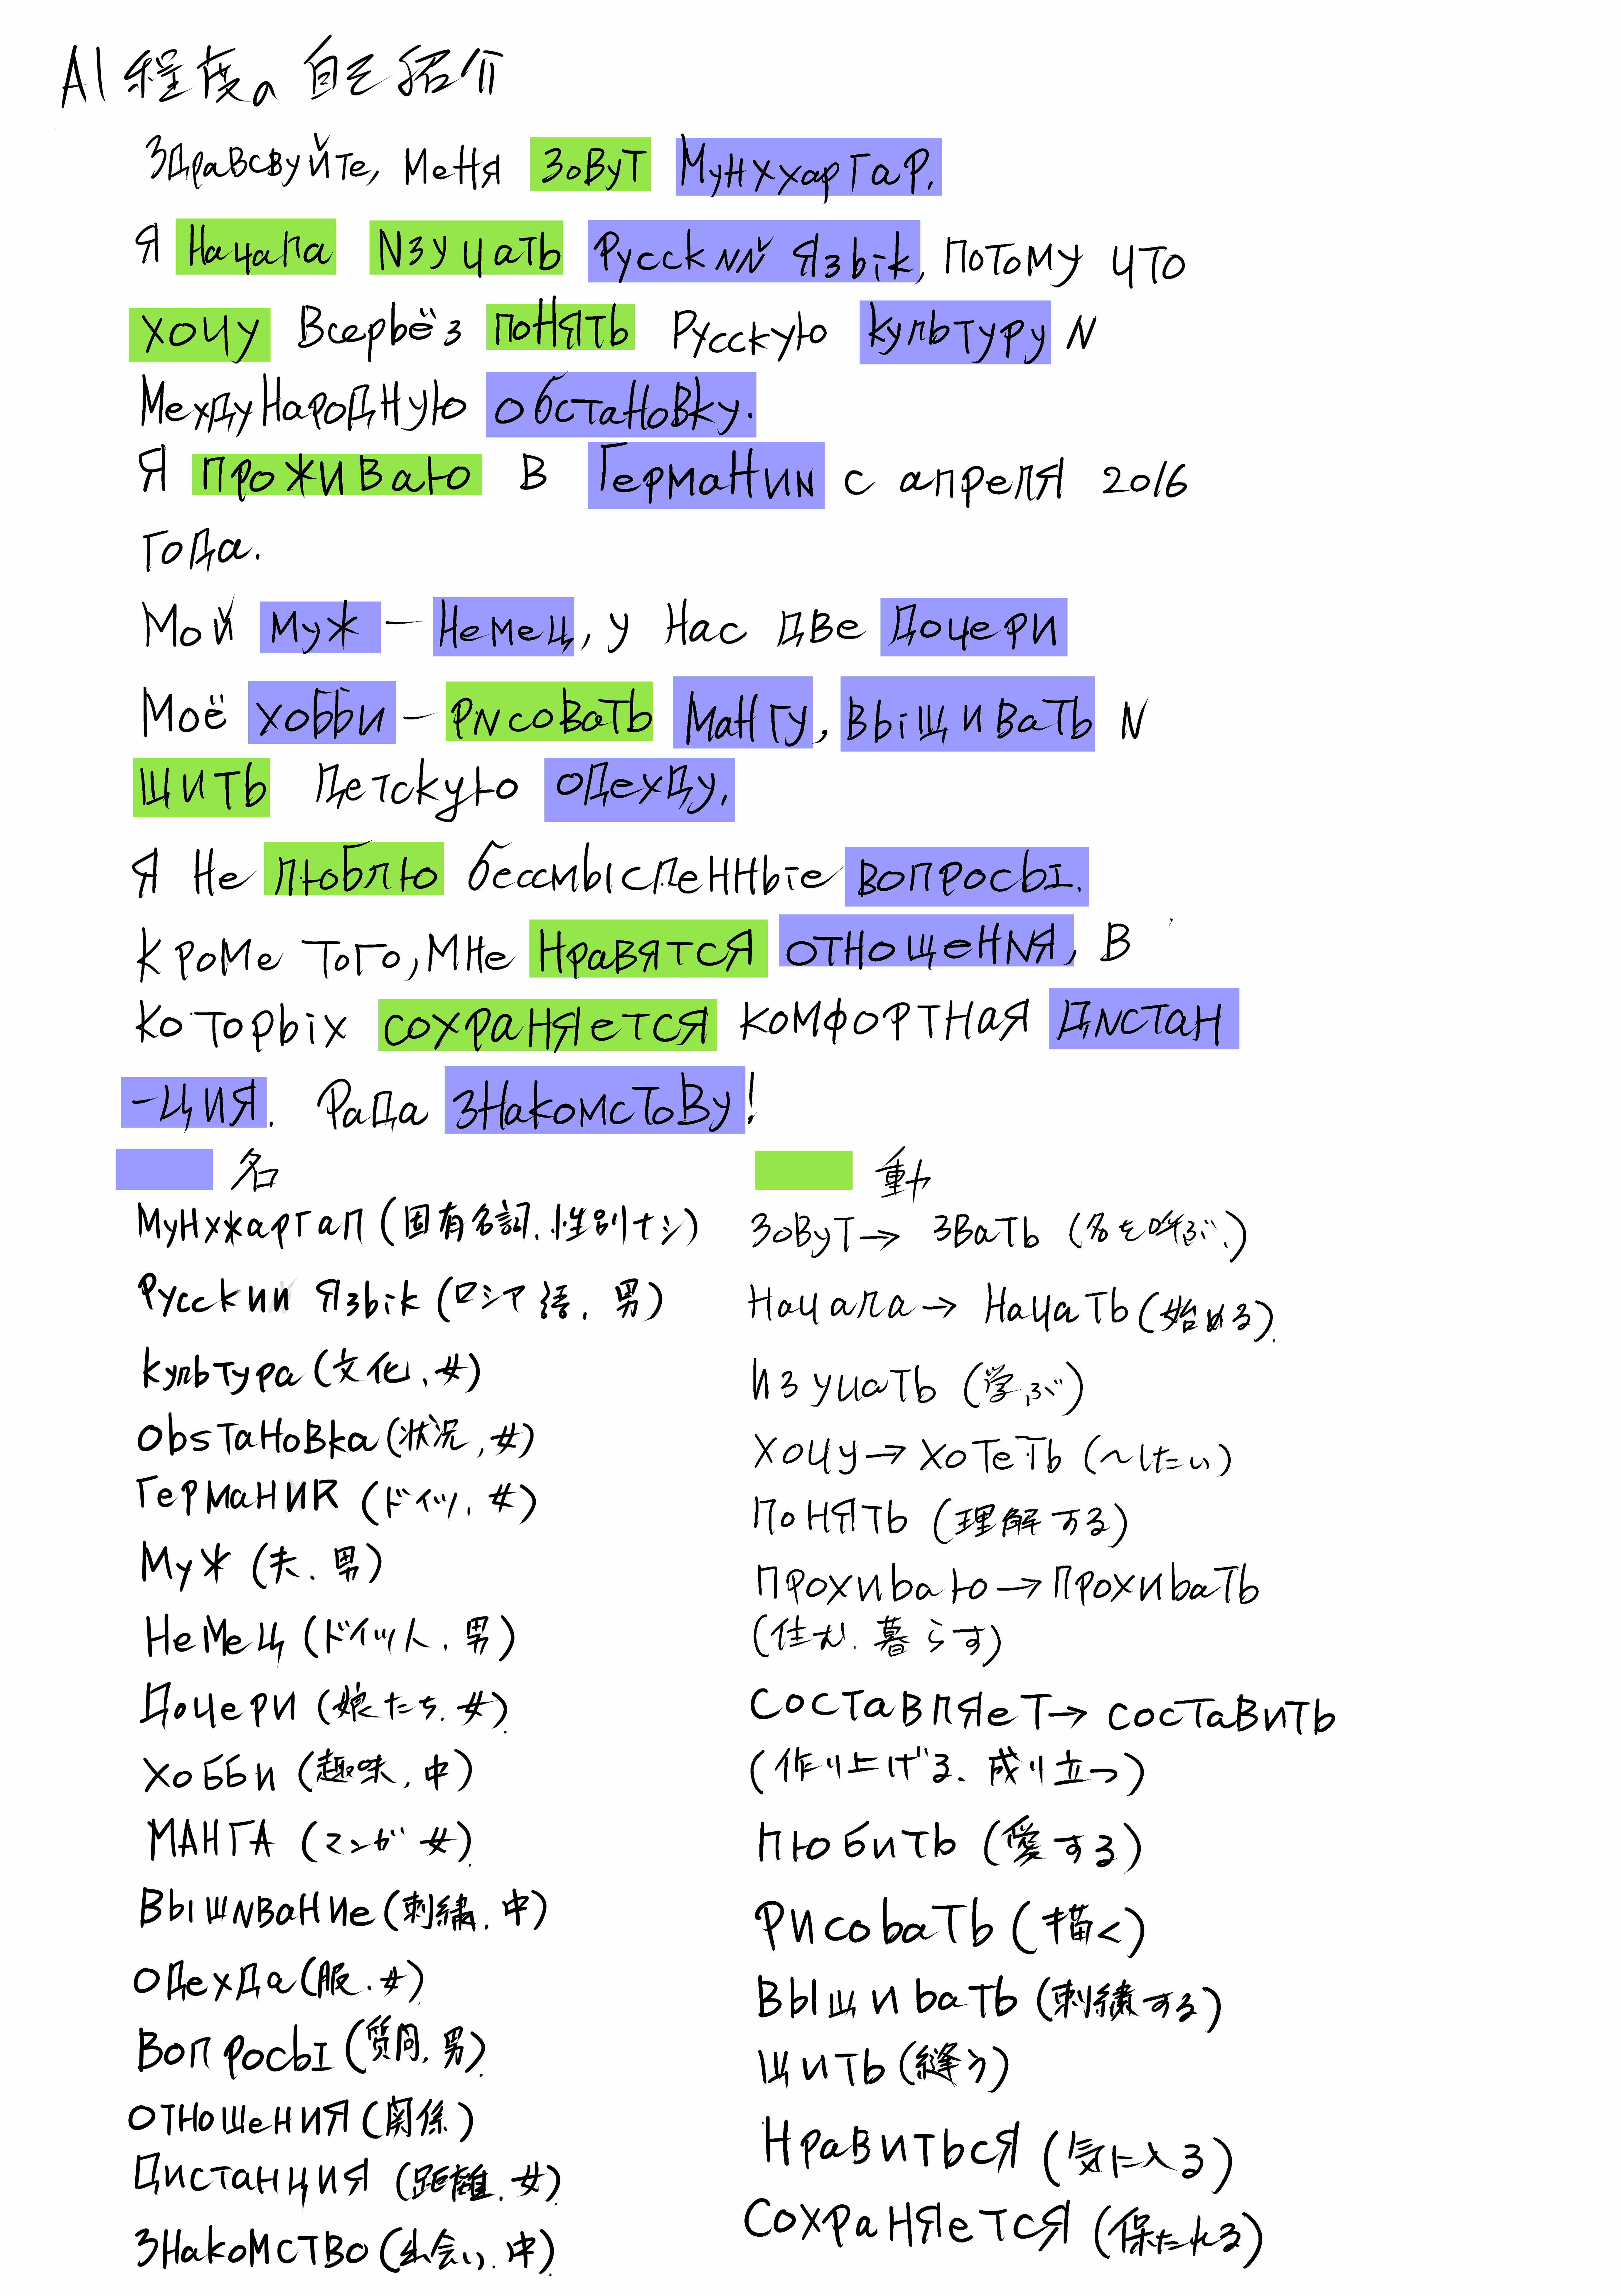 A1程度の自己紹介
Здравсвуйте, меня зовут Мунхжаргал.
Я начала изучать русский язык, потому что
хочу всерьёз понять русскую культуру и
межхдународную обстановку.
Я проживаю в Германии с апреля 2016
года.
Мой муж – немец, у нас две дочери
Моё хобби – рисовать мангу, выщивать и
щить детскую одехду.
Я не люблю бессмысленные вопросы.
Кроме того, мне нравятся отнощения, в
которых сохраняется комфортная дистан
-ция. Рада знакомстову!
名
動
Мунхжаргал (固有名詞、性別ナシ)
Русский язык (ロシア語、男)
культура (文化、女)
obsтановка (状況、女)
Германия (ドイツ、女)
Муж (夫、男)
Немец (ドイツ人、男)
Дочери (娘たち、女)
хобби (趣味、中)
МАНГА (マンガ 女)
Вышивание (刺繍、中)
одехда (服、女)
Вопросы (質問、男)
отношения (関係)
Дистанция (距離、女)
Знакомство (出会い、中)
Зовут → звать (名を呼ぶ、)
Начала → начать (始める)
изучать (学ぶ)
хочу → хотеть (～したい)
понять (理解する)
прохиваю → прохивать
(住む、暮らす)
составляет → составить
(作り上げる、成り立つ)
любить (愛する)
рисовать (描く)
выщивать (刺繍する)
щить (縫う)
нравиться (気に入る)
сохраняется (保たれる)